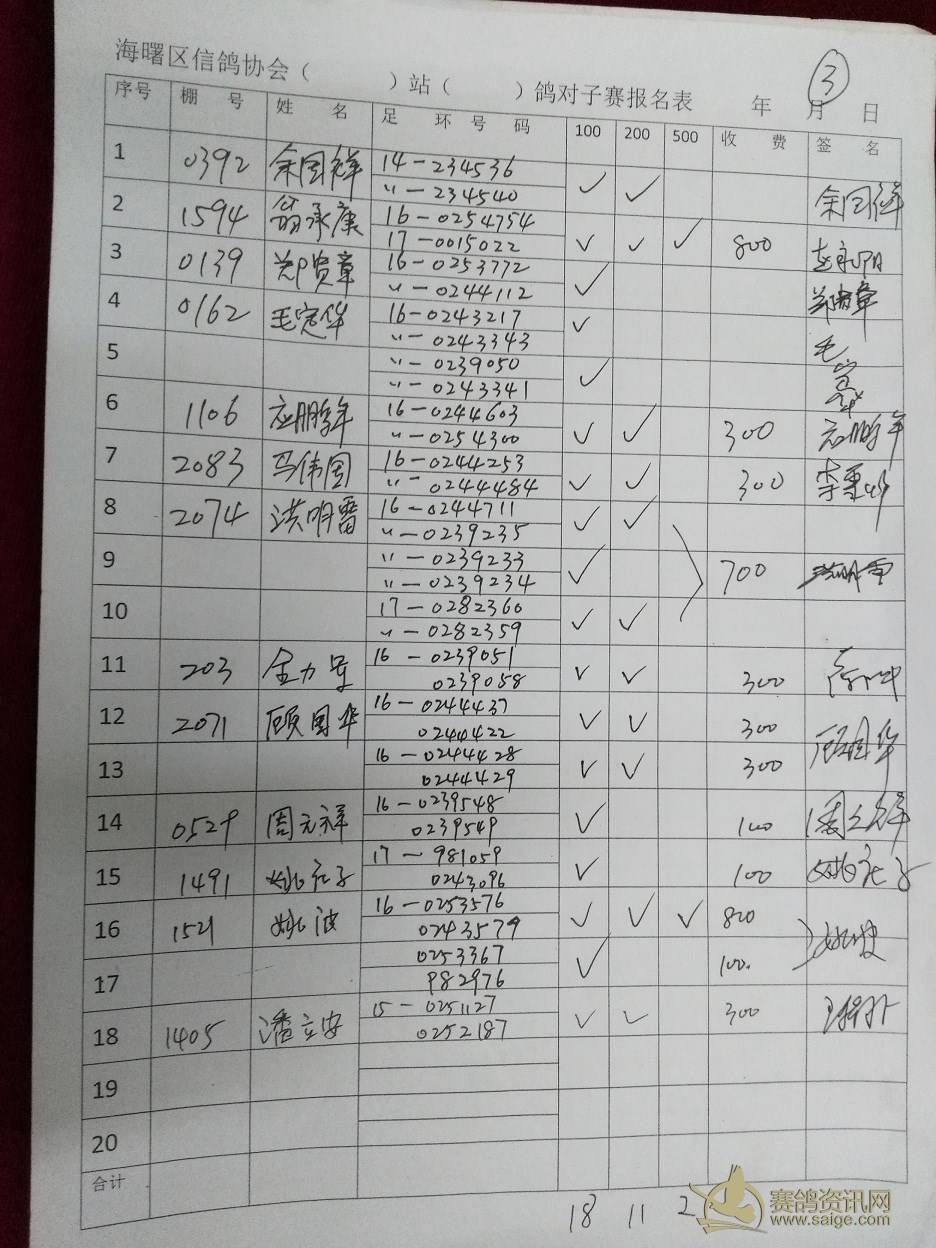 海曙区信鸽协会（ ）站（ ）鸽对子赛报名表 年 月 日
③
序号 棚号 姓名 足环号码 100 200 500 收费 签名
1 0392 余国祥 14-234536 ✓ ✓ 余国祥
〃-234540
2 1594 翁承康 16-0254754 ✓ ✓ ✓ 800
17-0015022
3 0139 郑贤章 16-0253772 ✓
〃-0244112
4 0162 毛定华 16-0243217 ✓ 毛定华
〃-0243343
5 〃-0239050 ✓
〃-0243341
6 1106 应鹏年 16-0244603 ✓ ✓ 300 应鹏年
〃-0254300
7 2083 马伟国 16-0244253 ✓ ✓ 300
〃-0244484
8 2074 洪明雷 16-0244711 ✓ ✓
〃-0239235
9 〃-0239233 ✓ 700
〃-0239234
10 17-0282360 ✓ ✓
〃-0282359
11 203 金力 16-0239051 ✓ ✓ 300
0239058
12 2071 顾国华 16-0244437 ✓ ✓ 300 顾国华
0244422
13 16-0244428 ✓ ✓ 300
0244429
14 0529 周元祥 16-0239548 ✓ 100 周元祥
0239549
15 1491 姚宏子 17-981059 ✓ 100 姚宏子
0243096
16 1521 姚波 16-0253576 ✓ ✓ ✓ 800 姚波
0243579
17 0253367 ✓ 100.
982976
18 1405 潘立安 15-0251127 ✓ ✓ 300
0252187
19
20
合计 18 11 2
赛鸽资讯网
www.saige.com